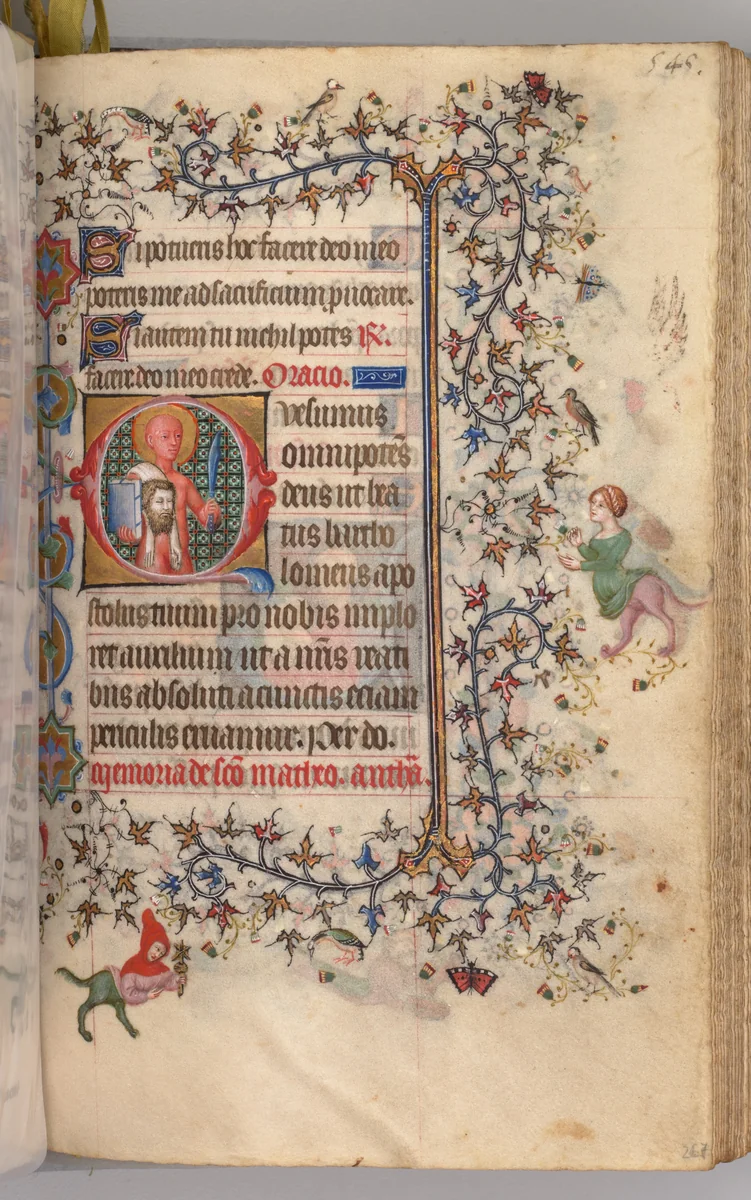 545.
Si potueris hoc facere deo meo
poteris me ad sacrificium puocare.
Si autem tu nichil potes R̃.
facere deo meo crede. Oracio.
Quesumus
omnipotẽs
deus ut bea
tus bartho
lomeus apo
stolus tuum pro nobis implo
ret auxilium ut a nr̃is reati
bus absoluti a cunctis eciam
periculis eruamur. Per do.
memoria de sc̃o matheo. anthã.
267